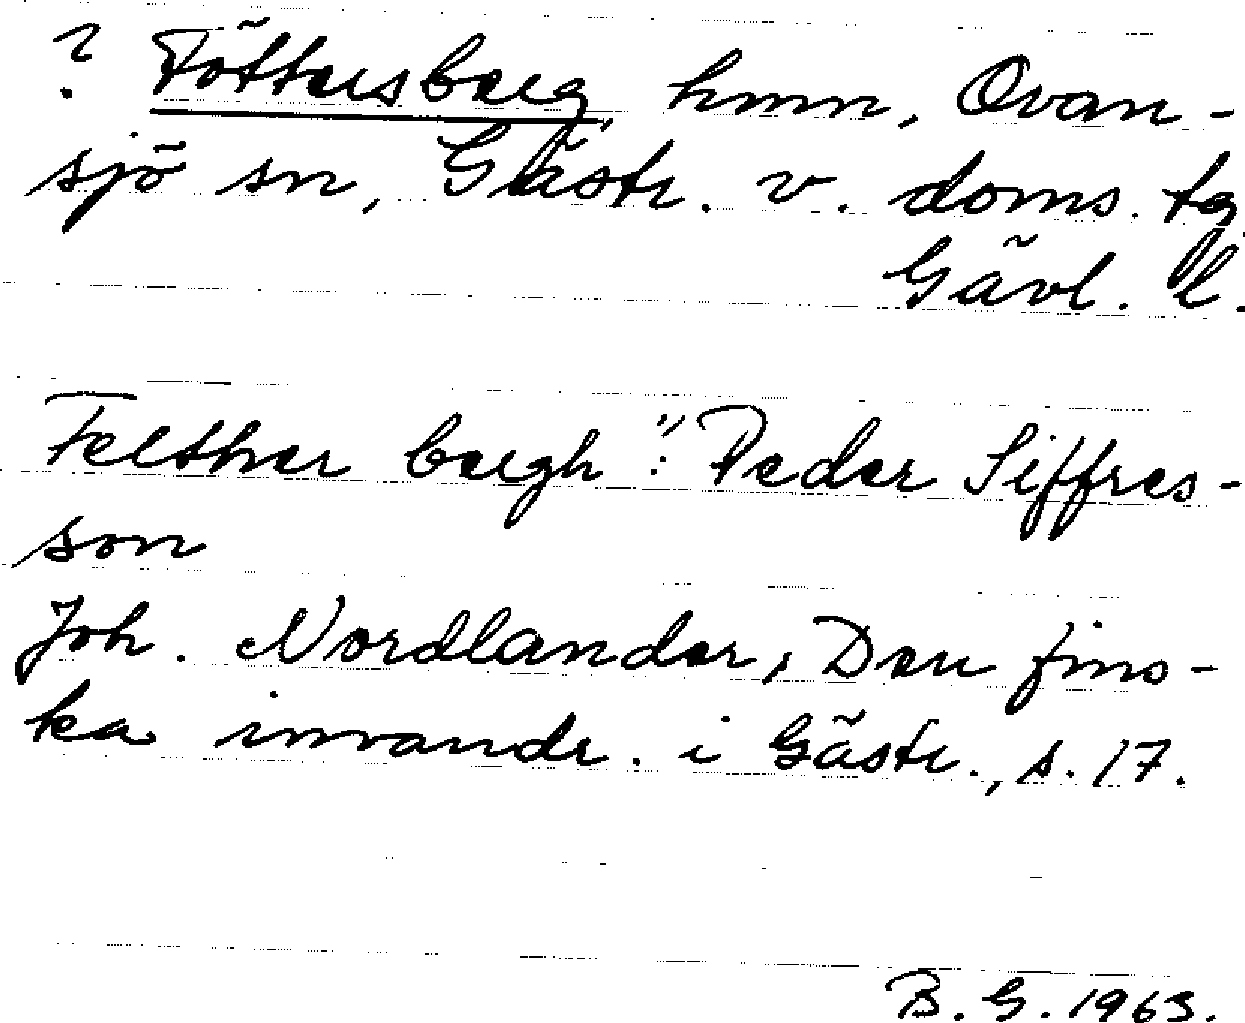 ? Föttersberg, hmn, Ovan-
sjö sn, Gästr. v. doms. tg
Gävl. l.
Felther bergh :" Peder Siffres-
son
Joh. Nordlander, Den fins-
ka invandr. i Gästr., s. 17.
B. G. 1963.